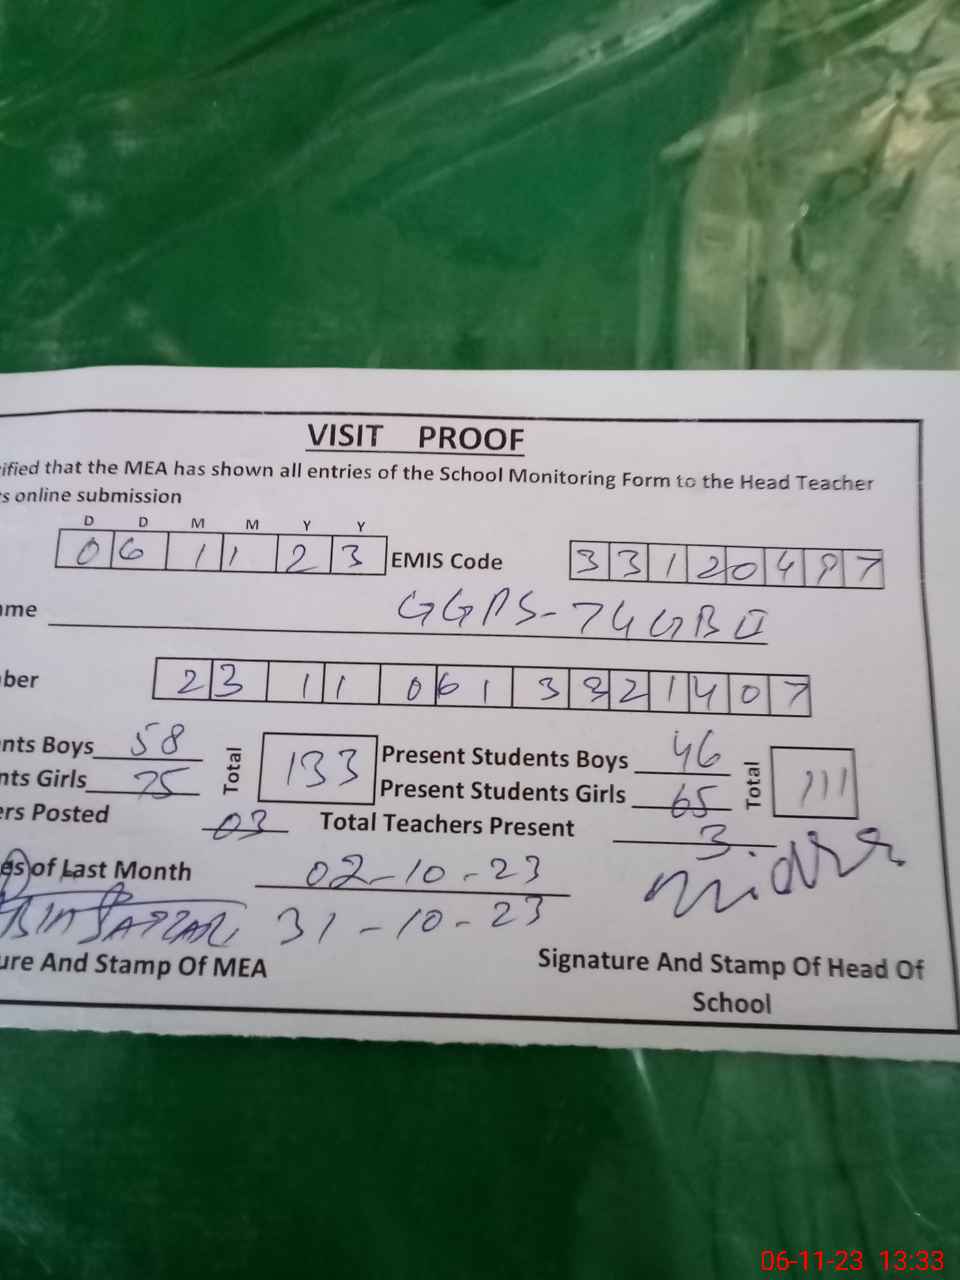 VISIT PROOF
ified that the MEA has shown all entries of the School Monitoring Form to the Head Teacher
s online submission
D D M M Y Y
0 6 1 1 2 3 EMIS Code 3 3 1 2 0 4 9 7
ame GGPS-74GB II
ber 2 3 1 1 0 6 1 3 3 2 1 4 0 7
nts Boys 58 Total 133 Present Students Boys 46 Total 111
nts Girls 75 Present Students Girls 65
ers Posted 03 Total Teachers Present 3
es of Last Month 02-10-23
31-10-23
ure And Stamp Of MEA Signature And Stamp Of Head Of
School
06-11-23 13:33